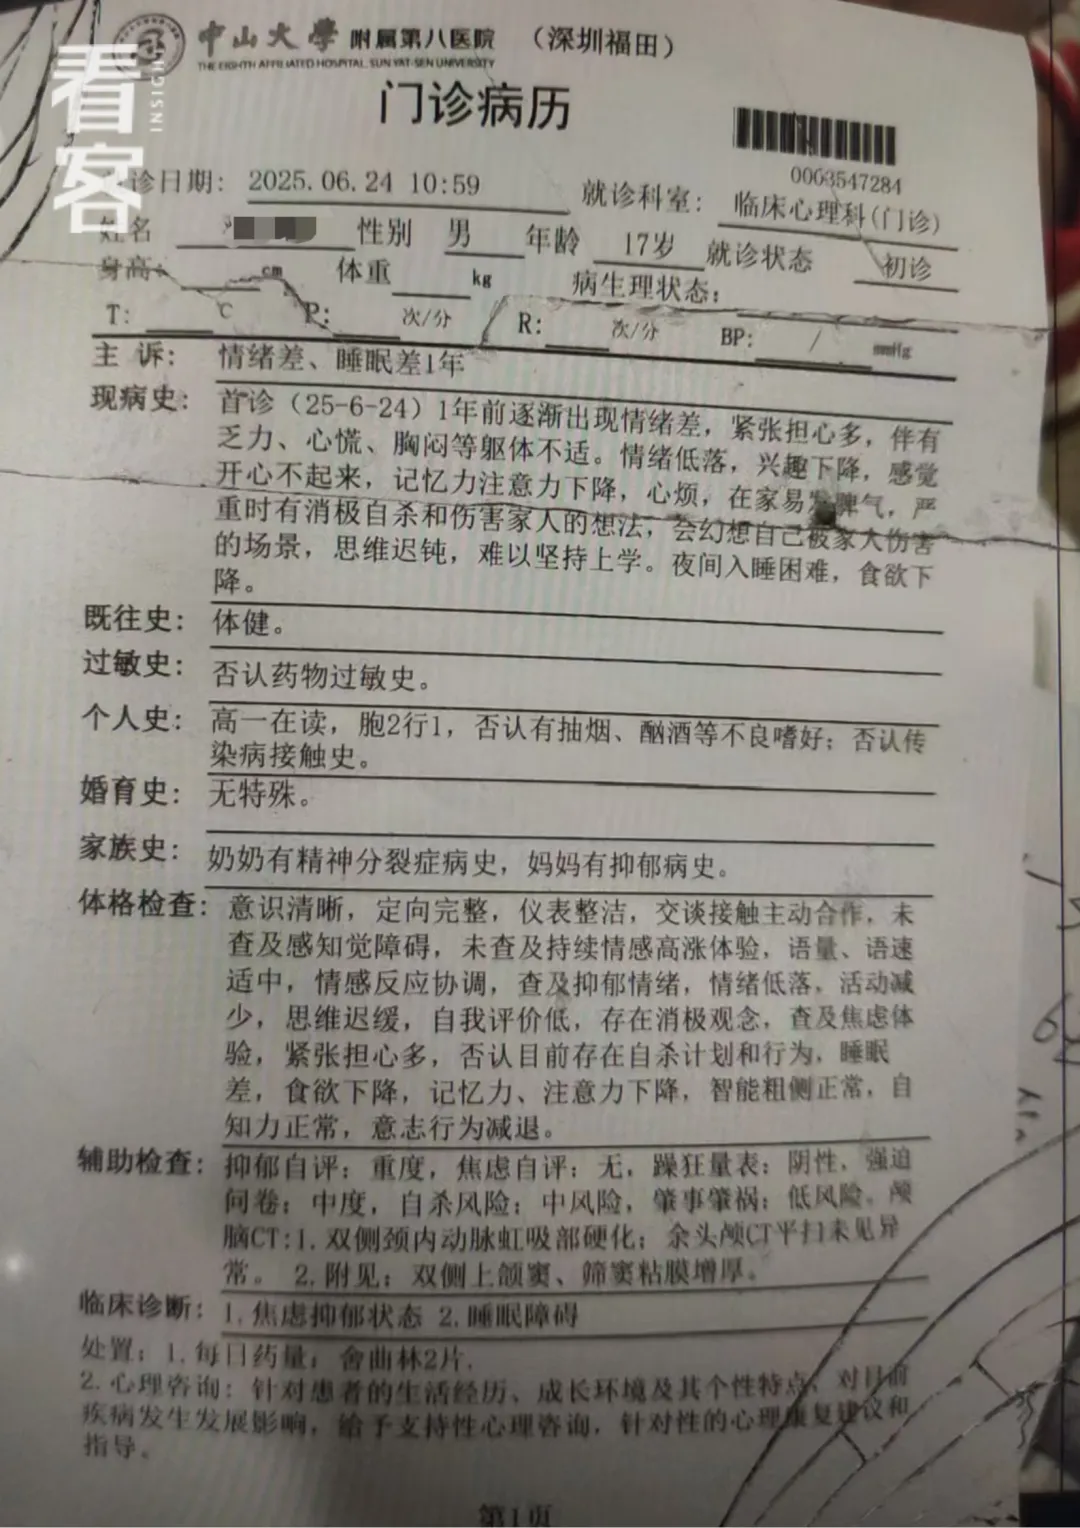 看客
INSIGHT
中山大学 附属第八医院 (深圳福田)
THE EIGHTH AFFILIATED HOSPITAL, SUN YAT-SEN UNIVERSITY
门诊病历
0003547284
诊日期: 2025.06.24 10:59 就诊科室: 临床心理科(门诊)
姓名 性别 男 年龄 17岁 就诊状态 初诊
身高: cm 体重 kg 病生理状态:
T: ℃ P: 次/分 R: 次/分 BP: / mmHg
主 诉: 情绪差、睡眠差1年
现病史: 首诊（25-6-24）1年前逐渐出现情绪差，紧张担心多，伴有
乏力、心慌、胸闷等躯体不适。情绪低落，兴趣下降，感觉
开心不起来，记忆力注意力下降，心烦，在家易发脾气，严
重时有消极自杀和伤害家人的想法，会幻想自己被家人伤害
的场景，思维迟钝，难以坚持上学。夜间入睡困难，食欲下
降。
既往史: 体健。
过敏史: 否认药物过敏史。
个人史: 高一在读，胞2行1，否认有抽烟、酗酒等不良嗜好；否认传
染病接触史。
婚育史: 无特殊。
家族史: 奶奶有精神分裂症病史，妈妈有抑郁病史。
体格检查: 意识清晰，定向完整，仪表整洁，交谈接触主动合作，未
查及感知觉障碍，未查及持续情感高涨体验，语量、语速
适中，情感反应协调，查及抑郁情绪，情绪低落，活动减
少，思维迟缓，自我评价低，存在消极观念，查及焦虑体
验，紧张担心多，否认目前存在自杀计划和行为，睡眠
差，食欲下降，记忆力、注意力下降，智能粗侧正常，自
知力正常，意志行为减退。
辅助检查: 抑郁自评：重度，焦虑自评：无，躁狂量表：阴性，强迫
问卷：中度，自杀风险：中风险，肇事肇祸：低风险。颅
脑CT:1.双侧颈内动脉虹吸部硬化；余头颅CT平扫未见异
常。 2.附见：双侧上颌窦、筛窦粘膜增厚。
临床诊断: 1.焦虑抑郁状态 2.睡眠障碍
处置：1.每日药量：舍曲林2片.
2.心理咨询：针对患者的生活经历、成长环境及其个性特点、对目前
疾病发生发展影响，给予支持性心理咨询，针对性的心理康复建议和
指导。
第1页